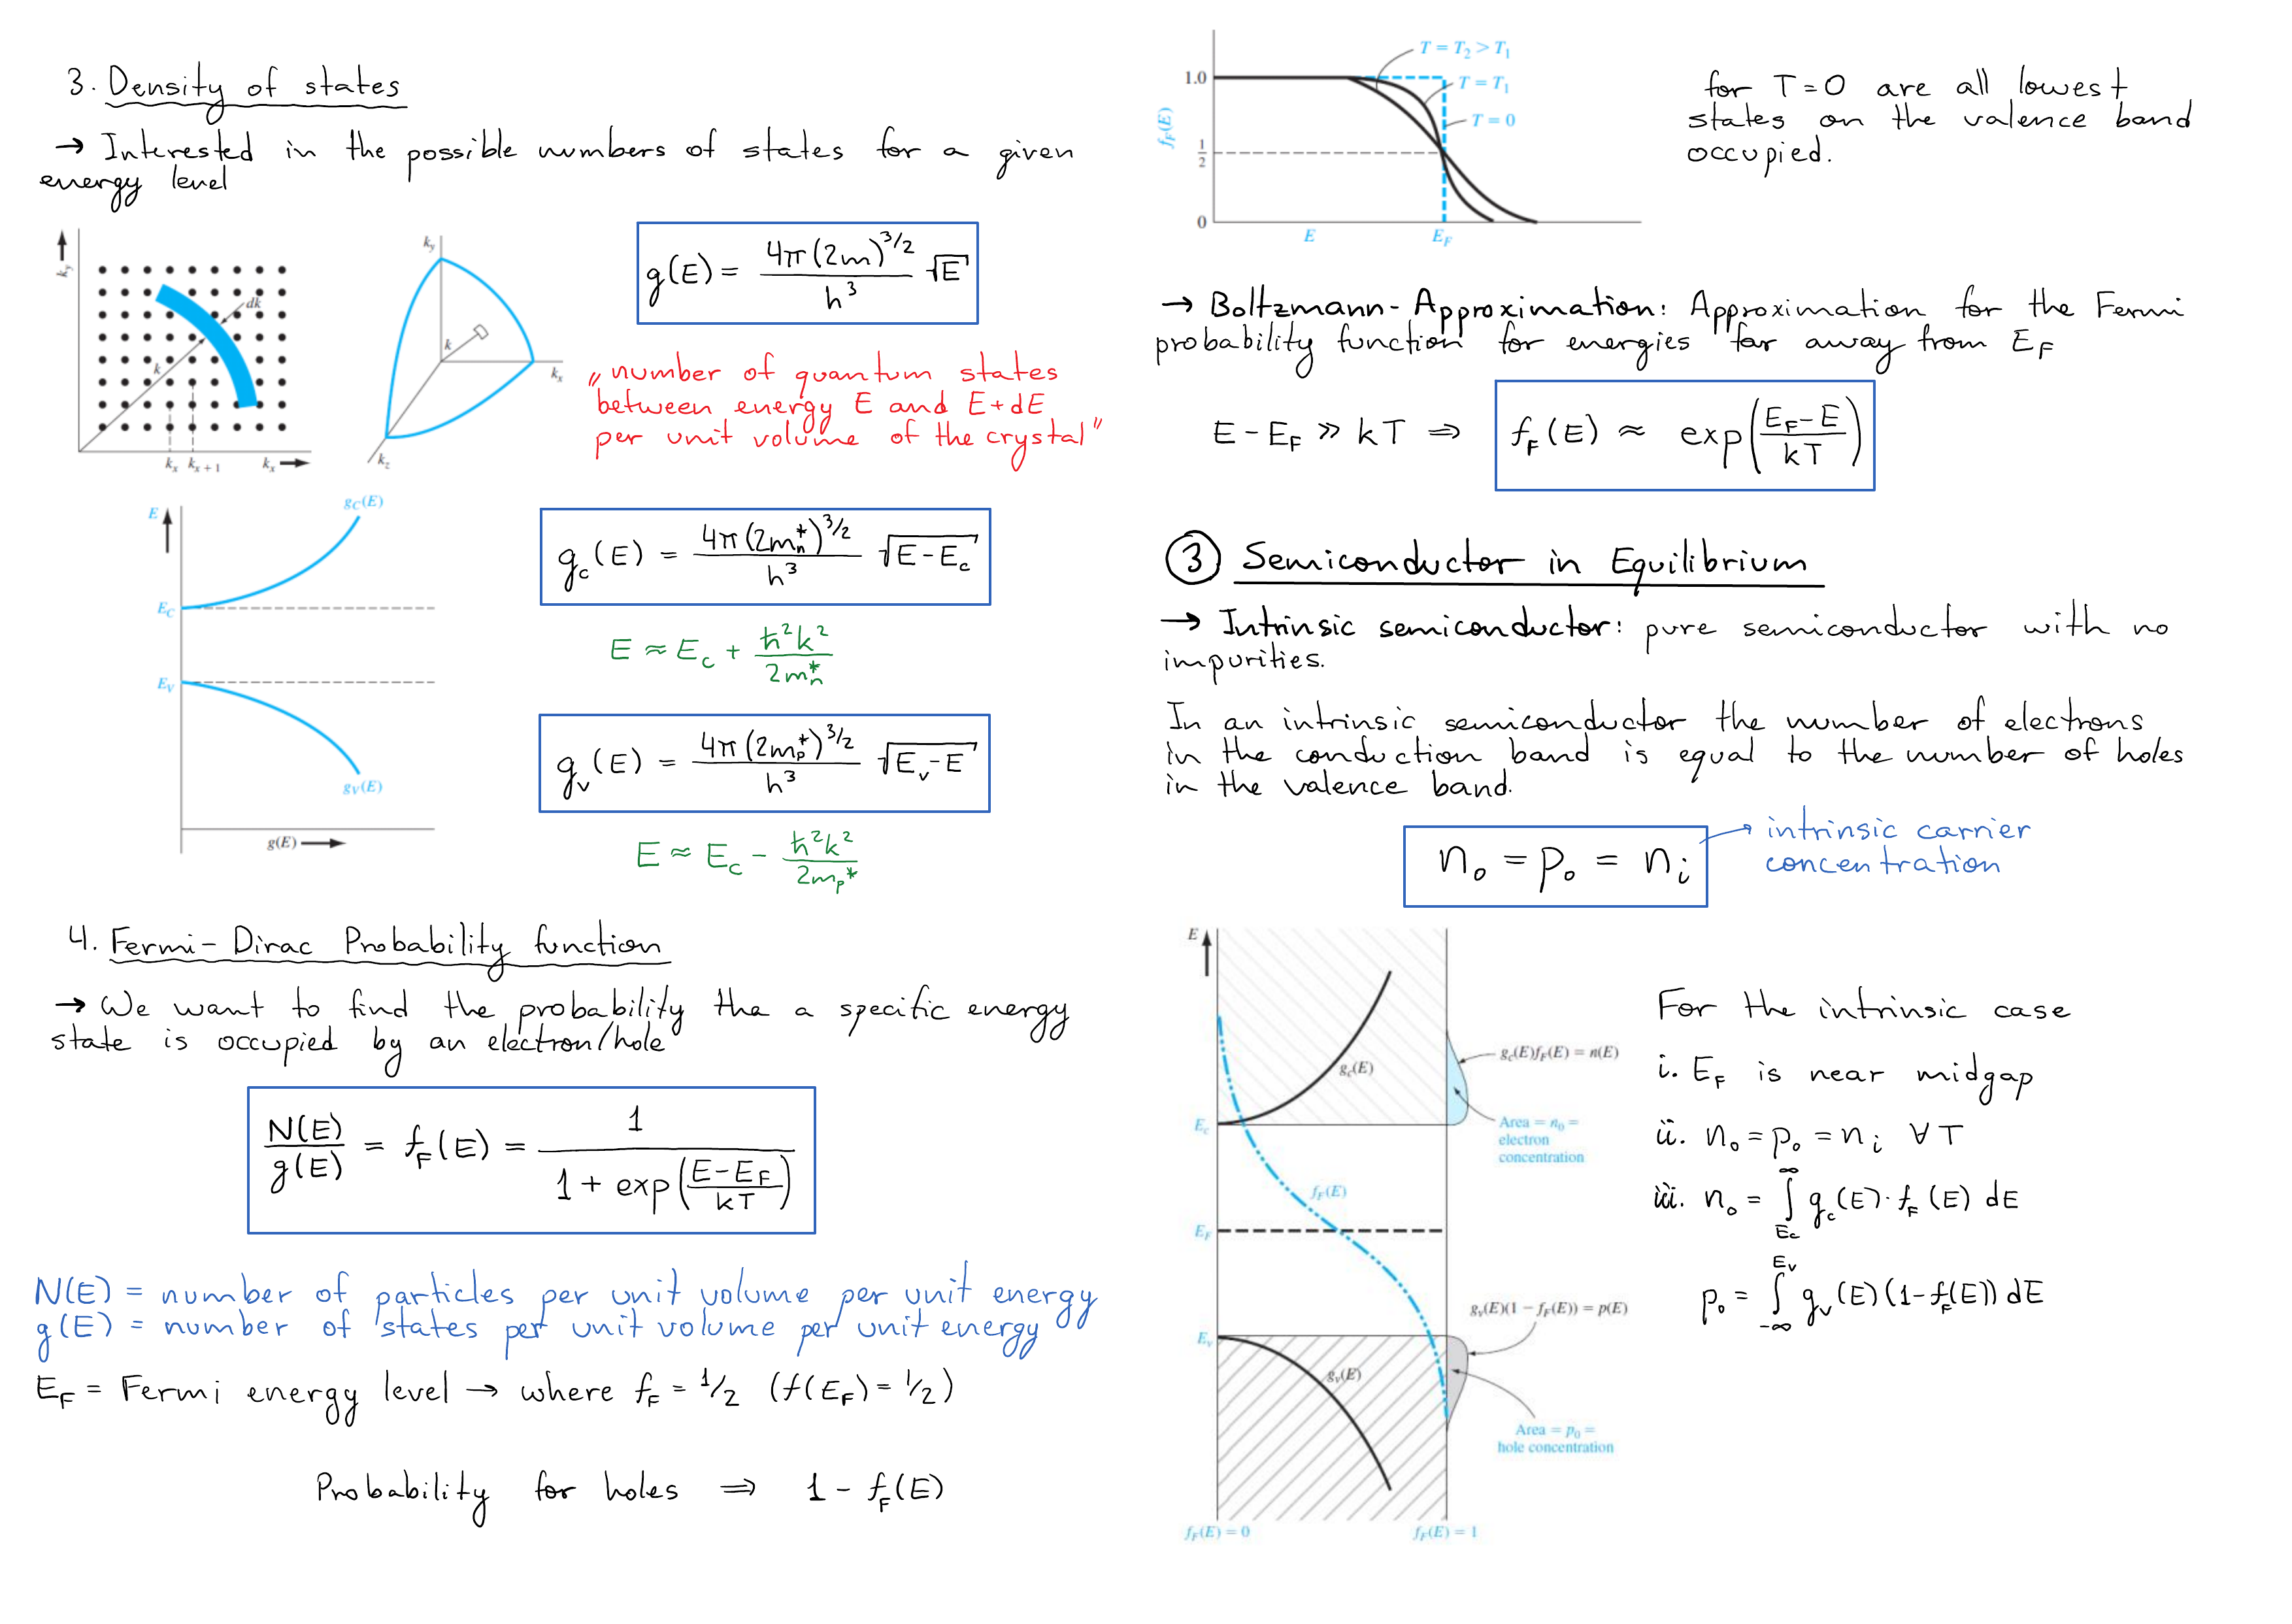 3. Density of states
→ Interested in the possible numbers of states for a given
energy level
k_y
dk
k
k_x k_x+1 k_x
k_y
k
k_x
k_z
g(E) = 4π(2m)^3/2 / h³ √E
„number of quantum states
between energy E and E+dE
per unit volume of the crystal"
E
g_C(E)
E_C
E_V
g_V(E)
g(E)
g_c(E) = 4π(2m_n*)^3/2 / h³ √E-E_c
E ≈ E_c + ħ²k² / 2m_n*
g_v(E) = 4π(2m_p*)^3/2 / h³ √E_v-E
E ≈ E_c - ħ²k² / 2m_p*
4. Fermi-Dirac Probability function
→ We want to find the probability the a specific energy
state is occupied by an electron/hole
N(E) / g(E) = f_F(E) = 1 / 1 + exp(E-E_F / kT)
N(E) = number of particles per unit volume per unit energy
g(E) = number of states per unit volume per unit energy
E_F = Fermi energy level → where f_F = 1/2 (f(E_F) = 1/2)
Probability for holes ⇒ 1 - f_F(E)
T = T_2 > T_1
1.0
T = T_1
T = 0
f_F(E)
1/2
0
E
E_F
for T=0 are all lowest
states on the valence band
occupied.
→ Boltzmann-Approximation: Approximation for the Fermi
probability function for energies far away from E_F
E - E_F ≫ kT ⇒ f_F(E) ≈ exp(E_F-E / kT)
③ Semiconductor in Equilibrium
→ Intrinsic semiconductor: pure semiconductor with no
impurities.
In an intrinsic semiconductor the number of electrons
in the conduction band is equal to the number of holes
in the valence band.
n_o = p_o = n_i
intrinsic carrier
concentration
E
g_c(E)f_F(E) = n(E)
g_c(E)
E_c
Area = n_0 =
electron
concentration
f_F(E)
E_F
g_v(E)(1 − f_F(E)) = p(E)
E_v
g_v(E)
Area = p_0 =
hole concentration
f_F(E) = 0
f_F(E) = 1
For the intrinsic case
i. E_F is near midgap
ii. n_o = p_o = n_i ∀T
iii. n_o = ∫_{E_c}^{∞} g_c(E)·f_F(E) dE
p_o = ∫_{-∞}^{E_v} g_v(E)(1-f_F(E)) dE